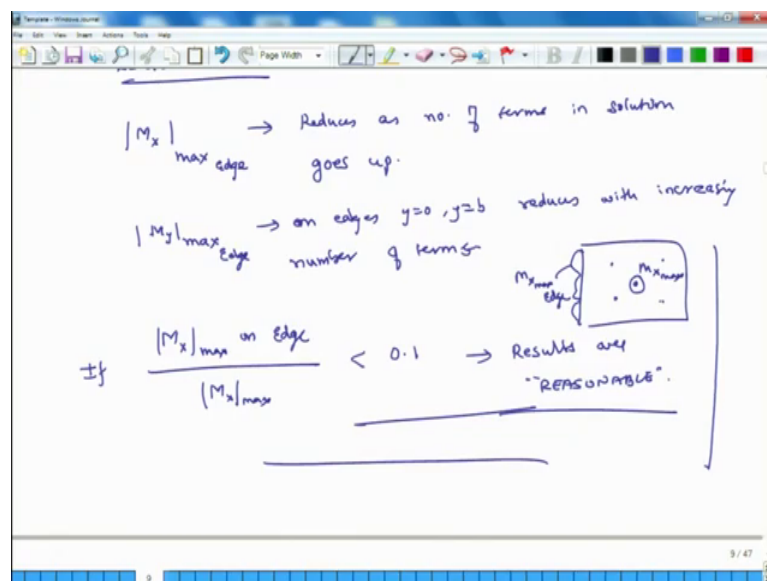 Template - Windows Journal
File Edit View Insert Actions Tools Help
Page Width
|Mx| max edge → Reduces as no. of terms in solution
goes up.
|My| max Edge → on edges y=0, y=b reduces with increasing
number of terms
Mx max edge
Mx max
If |Mx| max on Edge / |Mx| max < 0.1 → Results are
"REASONABLE".
9 / 47
9